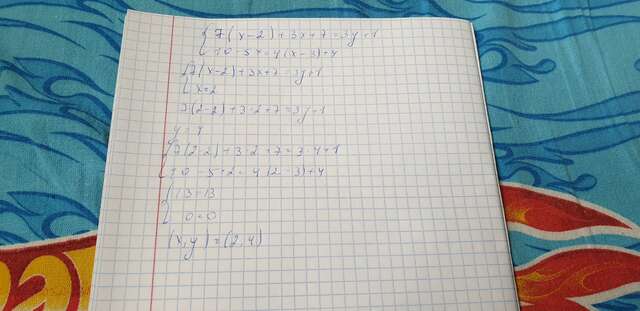 {7(x-2)+3x+7=3y+1
10-5x=4(x-3)+4
{7(x-2)+3x+7=3y+1
x=2
7(2-2)+3·2+7=3y+1
y=4
{7(2-2)+3·2+7=3·4+1
10-5·2=4(2-3)+4
{13=13
0=0
(x,y)=(2,4)